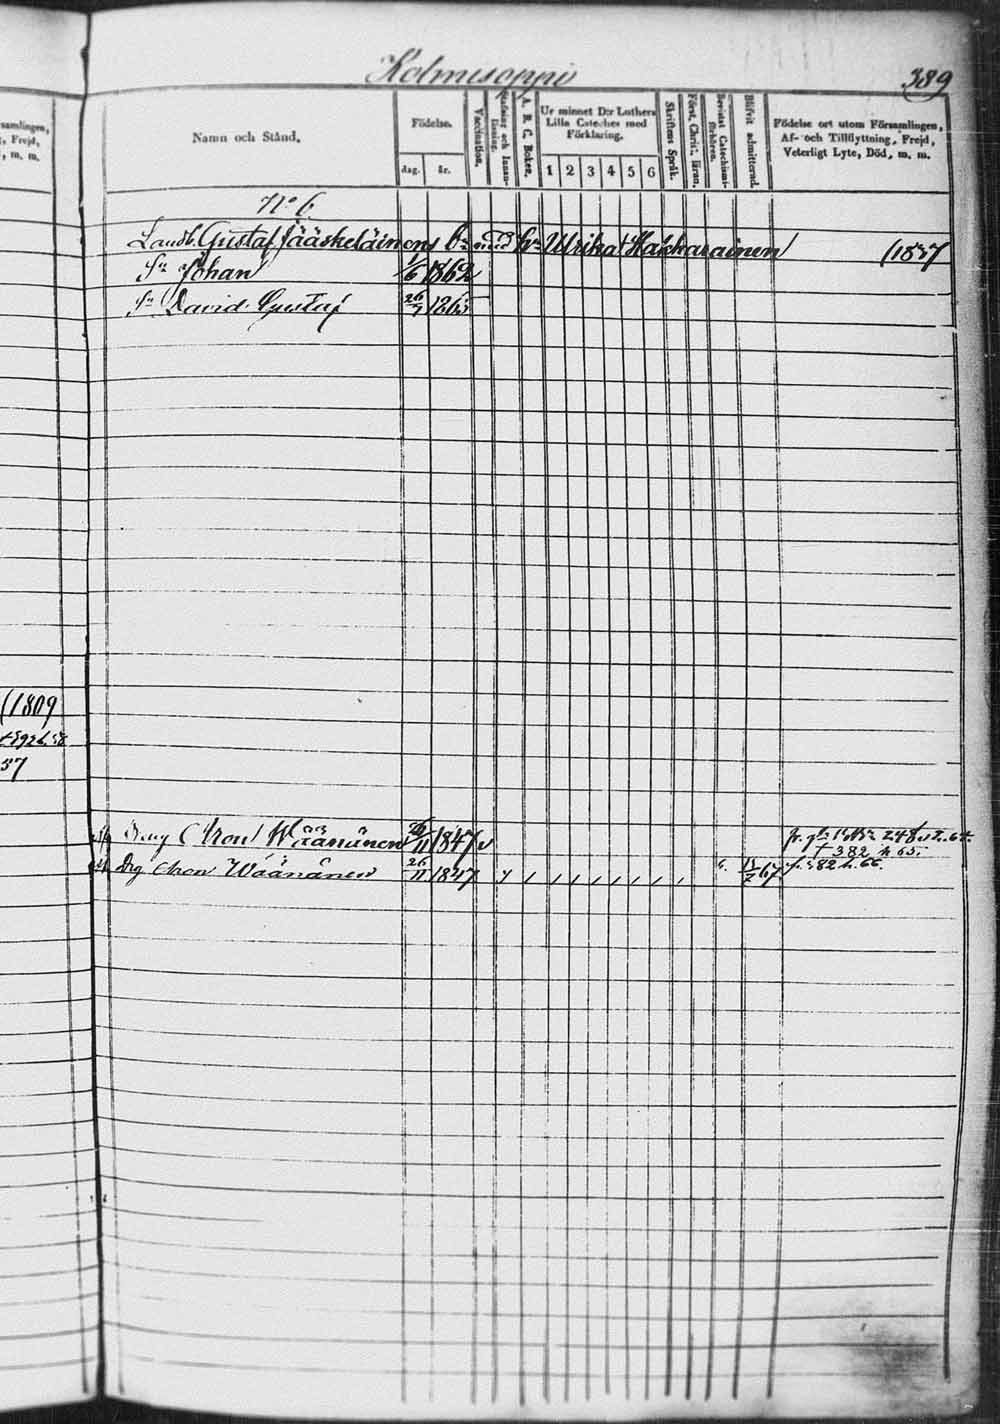 Kolmisoppi
389
samlingen,
t, Frejd,
, m. m.
Namn och Stånd,
Födelse.
dag. år.
Vaccination.
A. B. C. Boken.
Ur minnet D:r Luthers
Lilla Cateches med
Förklaring.
1 2 3 4 5 6
Skriftens Språk.
Först. Christ. läran.
Bevistat Catechismi-
förhören.
Blifvit admitterad.
Födelse ort utom Församlingen,
Af- och Tillflyttning, Frejd,
Veterligt Lyte, Död, m. m.
No 6
Landb. Gustaf Jääskeläinens med Ulrika Hakkarainen (1837
Sn Johan 1/6 1862
Sn David Gustaf 26/7 1865
(1809
37
Dreng Aron Wäänänen 26/11 1847 v
† 382 h 65.
Drg Aron Wäänänen 26/11 1847 67 fr. 382 h. 66.